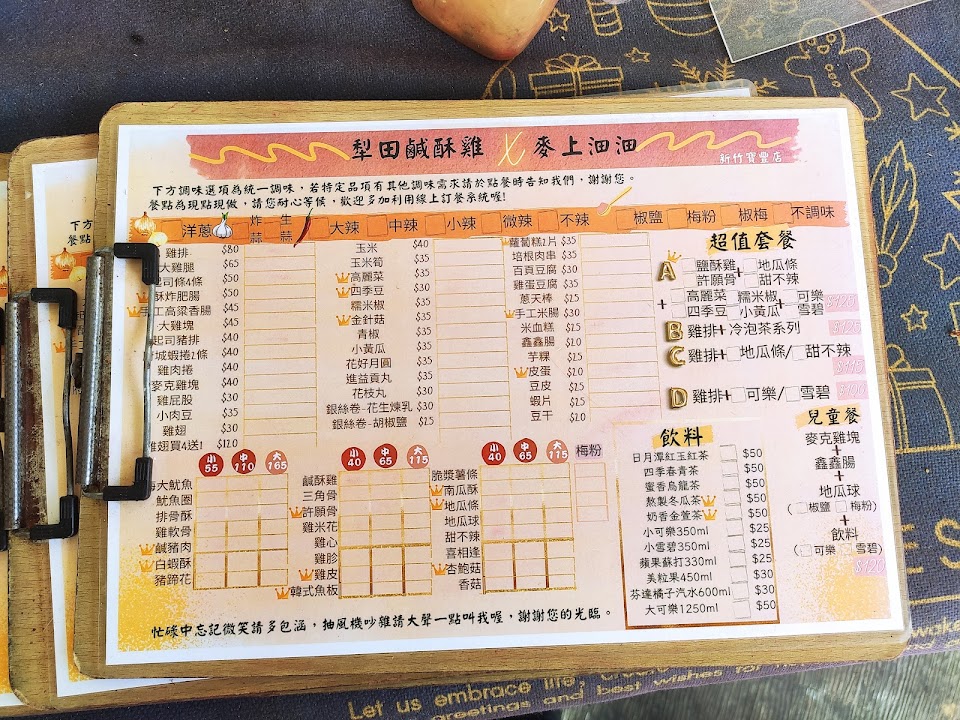 犁田鹹酥雞 X 麥上洄洄
新竹寶豐店
下方調味選項為統一調味，若特定品項有其他調味需求請於點餐時告知我們，謝謝您。
餐點為現點現做，請您耐心等候，歡迎多加利用線上訂餐系統喔!
洋蔥 炸蒜 生蒜 大辣 中辣 小辣 微辣 不辣 椒鹽 梅粉 椒梅 不調味
雞排 $80
大雞腿 $65
起司條4條 $50
酥炸肥腸 $50
手工高粱香腸 $50
大雞塊 $45
起司豬排 $40
城蝦捲2條 $40
雞肉捲 $40
麥克雞塊 $40
雞屁股 $30
小肉豆 $35
雞翅 $30
雞翅買4送1 $120
玉米 $40
玉米筍 $35
高麗菜 $35
四季豆 $35
糯米椒 $35
金針菇 $35
青椒 $35
小黃瓜 $35
花好月圓 $35
進益貢丸 $35
花枝丸 $30
銀絲卷-花生煉乳 $30
銀絲卷-胡椒鹽 $25
蘿蔔糕2片 $35
培根肉串 $35
百頁豆腐 $30
雞蛋豆腐 $35
蔥天棒 $25
手工米腸 $30
米血糕 $25
鑫鑫腸 $20
芋粿 $25
皮蛋 $20
豆皮 $25
蝦片 $25
豆干 $20
小 55 中 110 大 165
大魷魚
魷魚圈
排骨酥
雞軟骨
鹹豬肉
白蝦酥
豬蹄花
小 40 中 65 大 115
鹹酥雞
三角骨
許願骨
雞米花
雞心
雞胗
雞皮
韓式魚板
小 40 中 65 大 115 梅粉
脆漿薯條
南瓜酥
地瓜條
地瓜球
甜不辣
喜相逢
杏鮑菇
香菇
超值套餐
A 鹽酥雞 許願骨 + 地瓜條 甜不辣
+ 高麗菜 糯米椒 四季豆 小黃瓜 + 可樂 雪碧
B 雞排+ 冷泡茶系列
C 雞排+ 地瓜條/ 甜不辣
D 雞排+ 可樂/ 雪碧
飲料
日月潭紅玉紅茶 $50
四季春青茶 $50
蜜香烏龍茶 $50
熬製冬瓜茶 $50
奶香金萱茶 $50
小可樂350ml $25
小雪碧350ml $25
蘋果蘇打330ml $25
美粒果450ml $30
芬達橘子汽水600ml $30
大可樂1250ml $50
兒童餐
麥克雞塊
+
鑫鑫腸
+
地瓜球
( 椒鹽 梅粉)
+
飲料
( 可樂 雪碧)
$120
忙碌中忘記微笑請多包涵，抽風機吵雜請大聲一點叫我喔，謝謝您的光臨。
Let us embrace life,
greetings and best wishes for